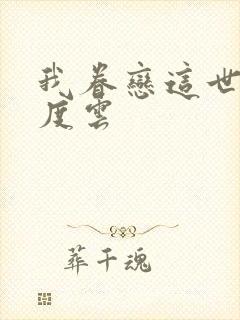 我眷戀這世
度雲
葬千魂